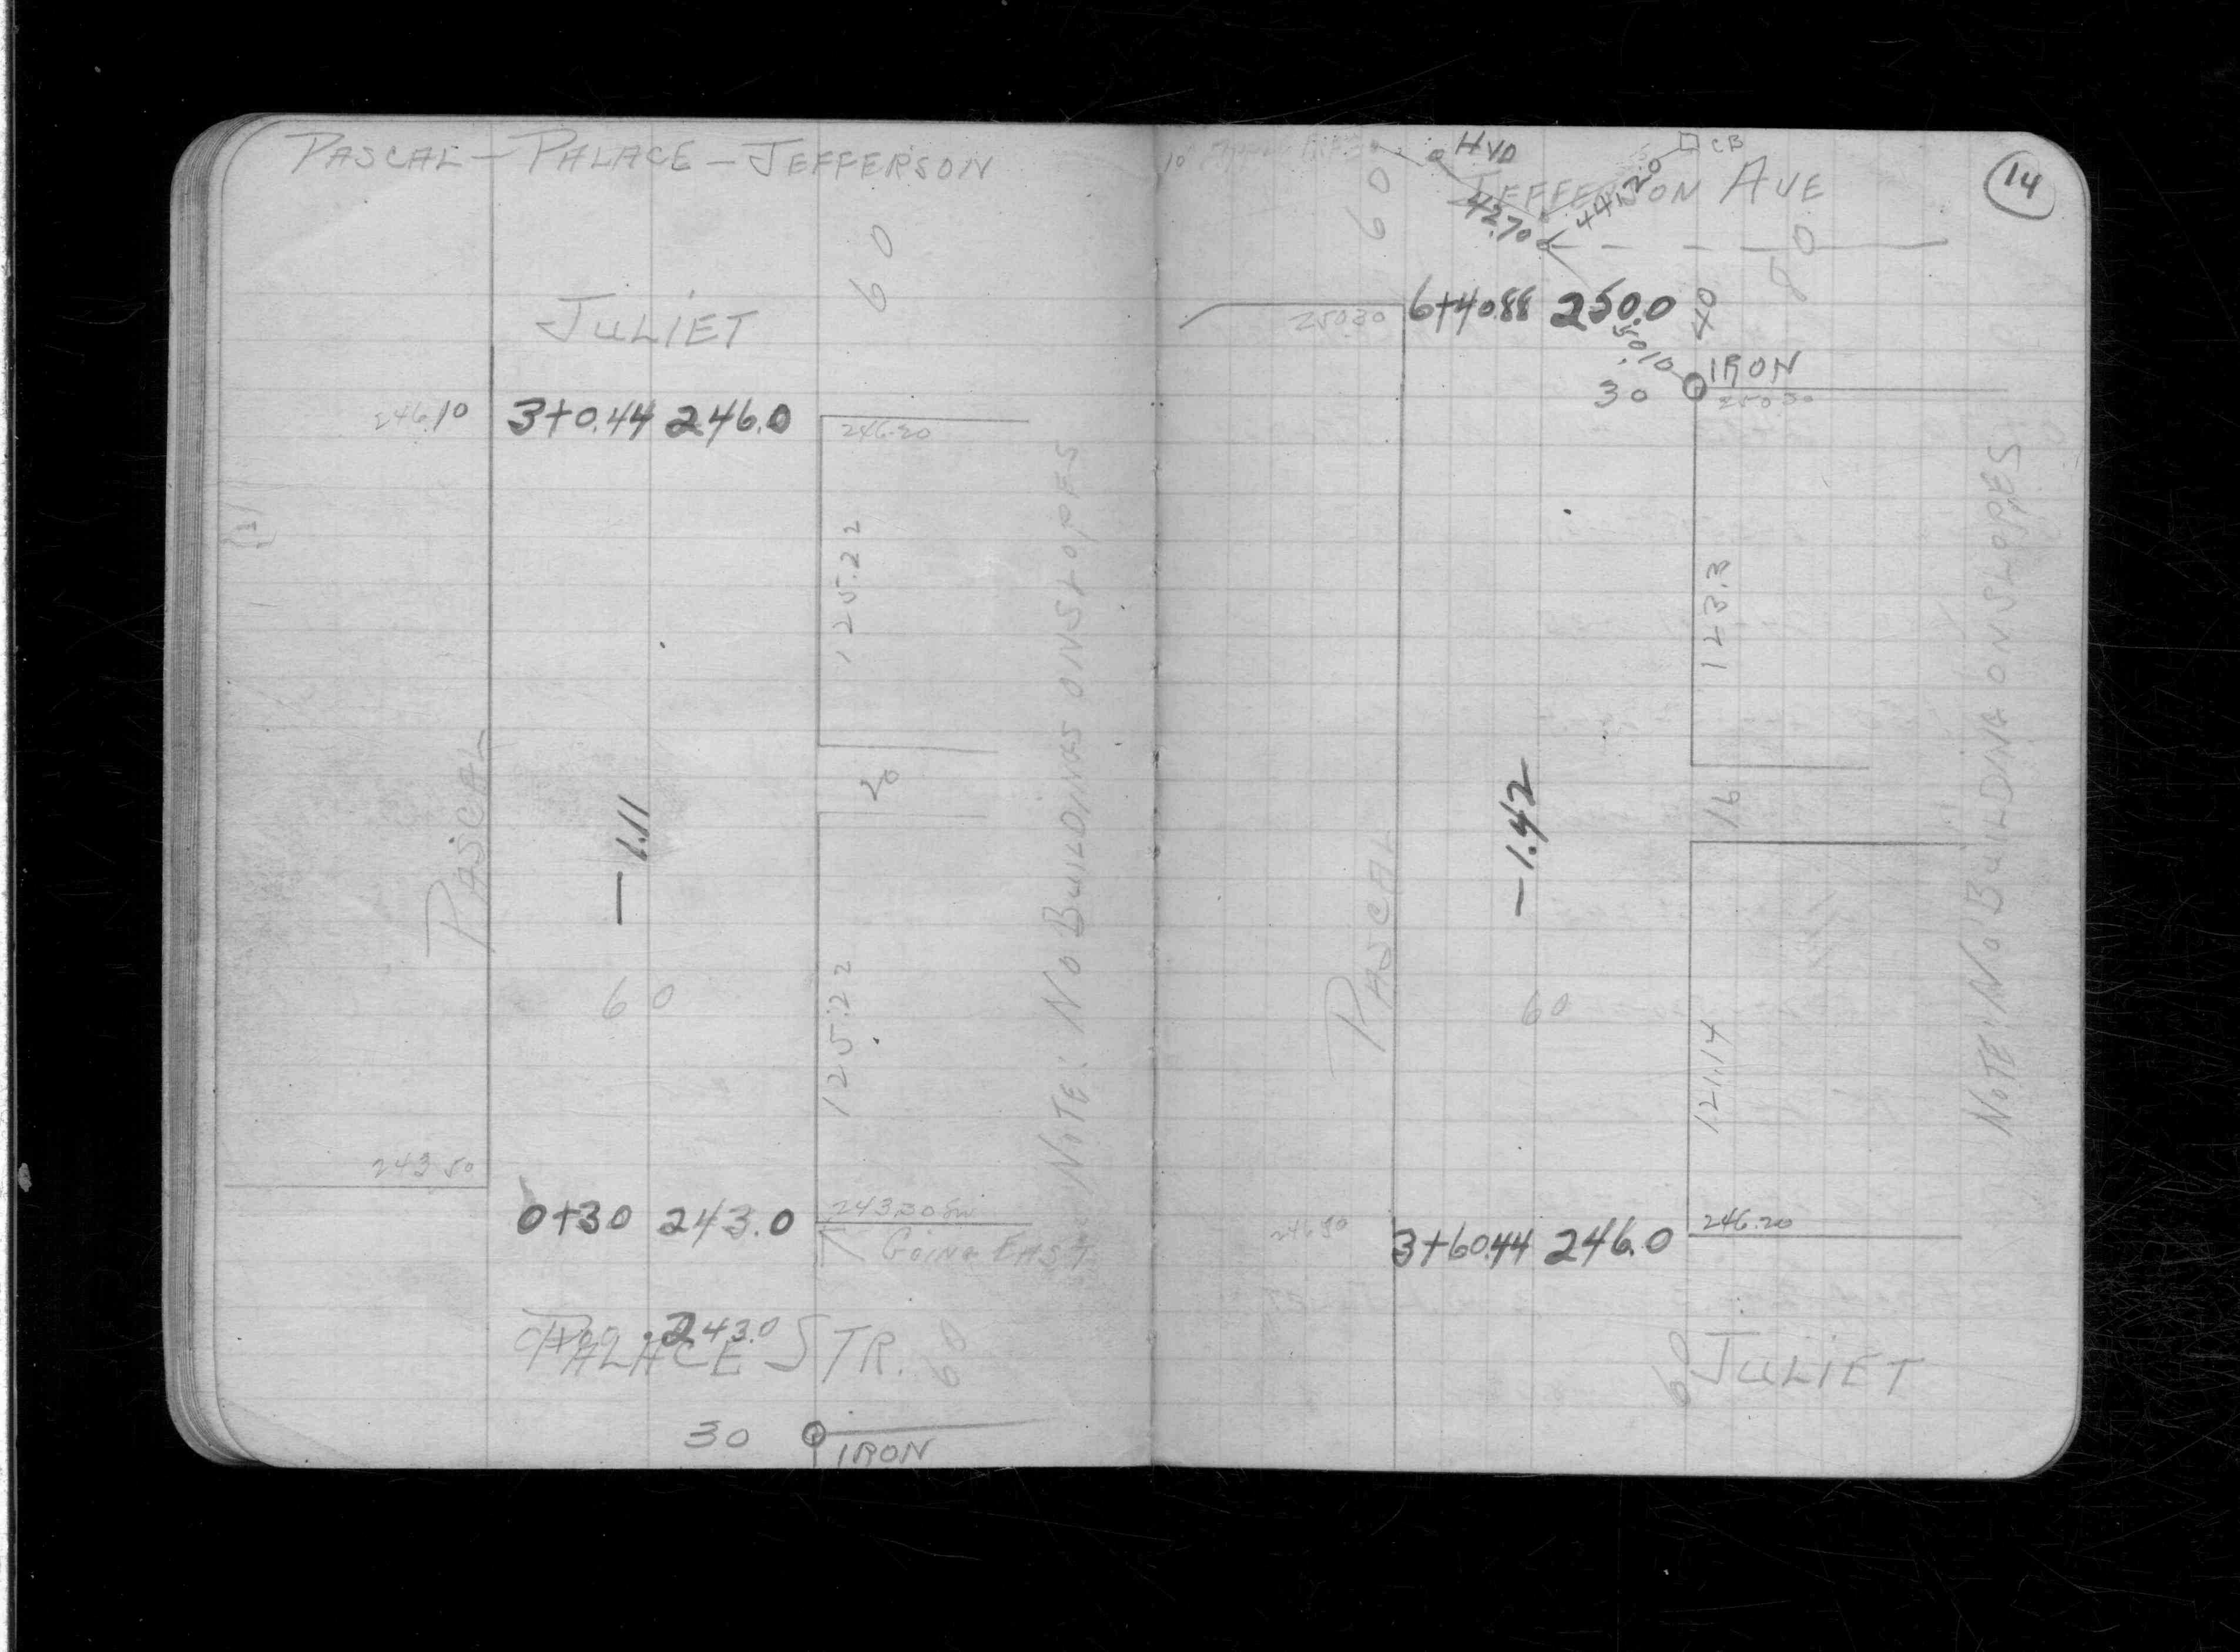 PASCAL - PALACE - JEFFERSON
60
JULIET
246.10
3+0.44 246.0
246.20
125.22
NOTE: NO BUILDINGS ON SLOPES
20
PASCAL
-1.11
60
125.22
243.50
0+30 243.0
243.30
GOING EAST
243.0
PALACE STR.
60
30
IRON
14
HYD
CB
60
JEFFERSON AVE
42.70
44.20
80
250.30
6+40.88 250.0
40
50.10
IRON
30
250.30
123.3
NOTE: NO BUILDING ON SLOPES
16
PASCAL
-1.42
60
121.14
3+60.44 246.0
246.20
60
JULIET